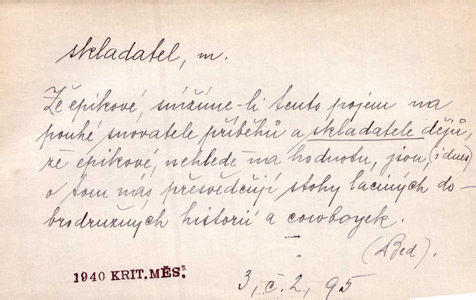 skladatel, m.
Že epikové, snížíme-li tento pojem na
pouhé snovatele příběhů a skladatele dějů,
že epikové, nehledě na hodnotu, jsou (i dnes)
o tom nás přesvědčují stohy laciných do-
brodružných historií a cowboyek.
(Bed).
1940 KRIT. MĚS. 3, č. 2, 95